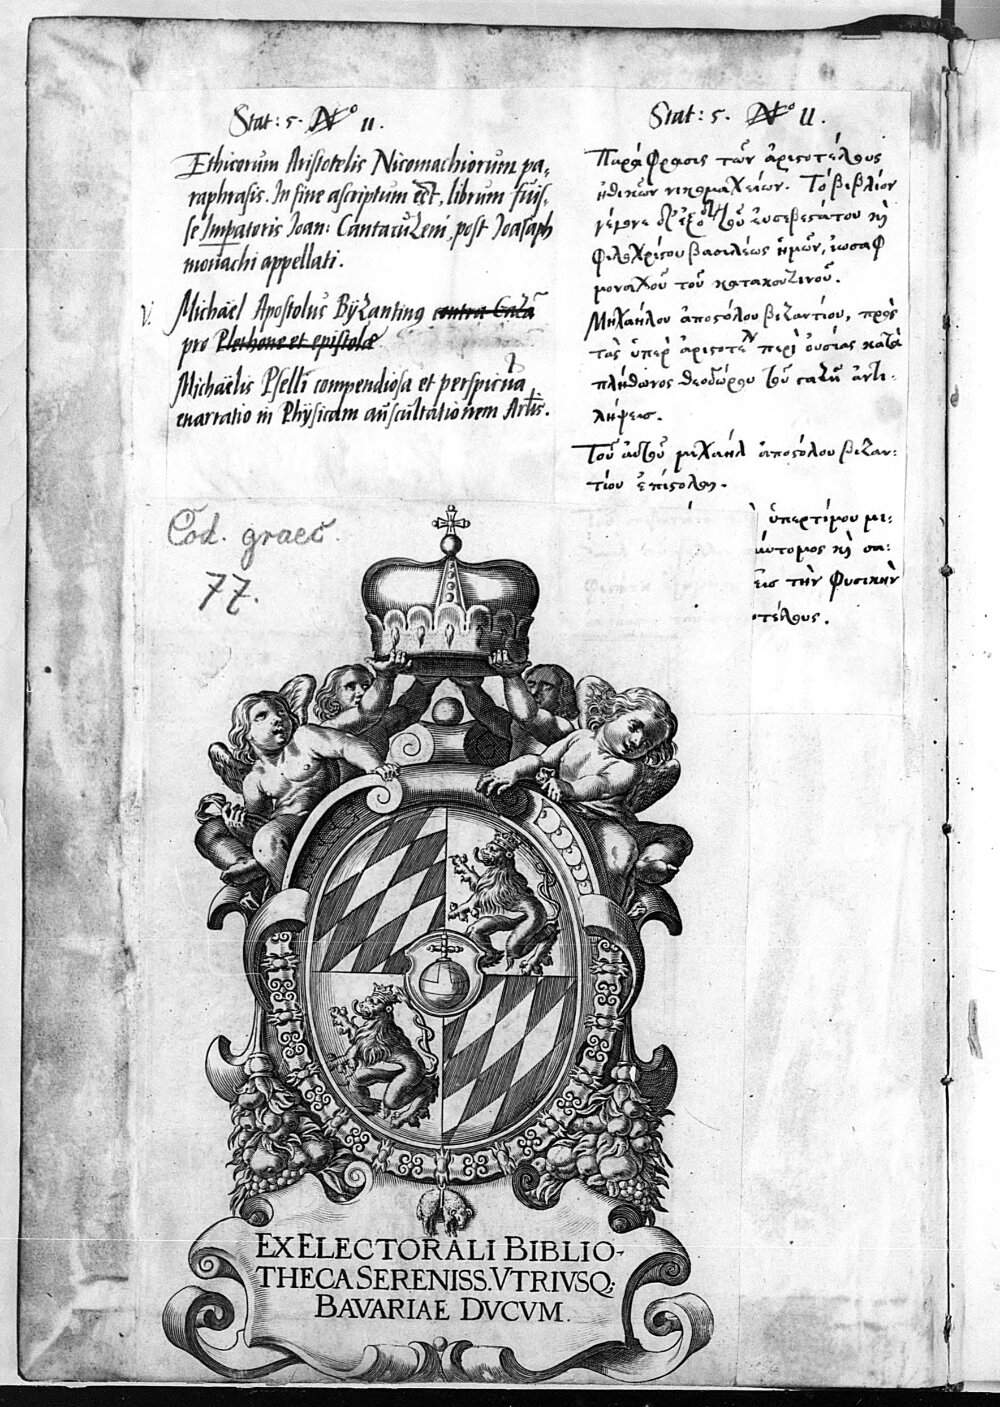 Stat: 5. N° 11.
Ethicorum Aristotelis Nicomachiorum pa,
raphrasis. In fine ascriptum est, librum fuis,
se Imperatoris Joan: Cantacuzeni, post Joasaph
monachi appellati.
V. Michaël Apostolus Byzantinus contra Gaza
pro Plethone et epistolæ
Michaëlis Pselli compendiosa et perspicua
enarratio in Physicam auscultationem Aristlis.
Stat: 5. N° 11.
Παράφρασις τῶν ἀριστοτέλους
ἠθικῶν νικομαχείων. Τὸ βιβλίον
γέγονε τοῦ εὐσεβεστάτου κὶ
φιλοχρίστου βασιλέως ἡμῶν, ἰωσαφ
μοναχοῦ τοῦ κατακουζινοῦ.
Μιχαήλου ἀποστόλου βιζαντίου, πρὸς
τὰς ὑπὲρ ἀριστοτέλ περὶ οὐσίας κατὰ
πλήθωνος θεοδώρου τοῦ γαζῆ ἀντι-
λήψεις.
Τοῦ αὐτοῦ μιχαήλ ἀποστόλου βιζαν-
τίου ἐπιστολαι.
ὑπερτίμου μι:
ύντομος κὶ σα:
εις τὴν φυσικὴν
οτέλους.
Cod. graec.
77.
EX ELECTORALI BIBLIO-
THECA SERENISS. VTRIVSQ;
BAVARIAE DVCVM.